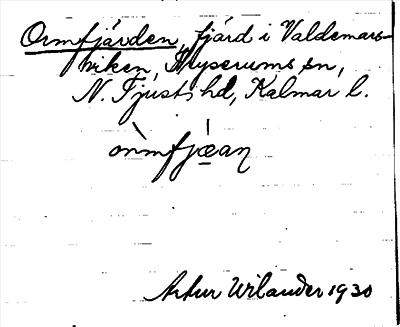 Ormfjärden, fjärd i Valdemars-
viken, Tryserums sn,
N. Tjusts hd, Kalmar l.
òrmfjæ̀aṇ
Artur Wilander 1930